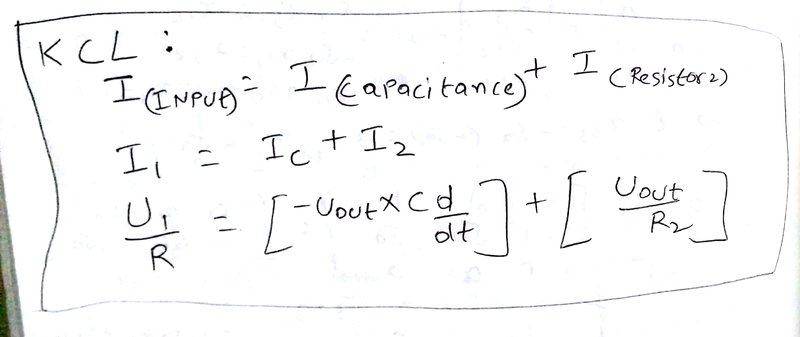 KCL :
I(INPUt) = I (Capacitance) + I (Resistor 2)
I₁ = Ic + I₂
U₁/R = [-Uout × C d/dt] + [Uout/R₂]